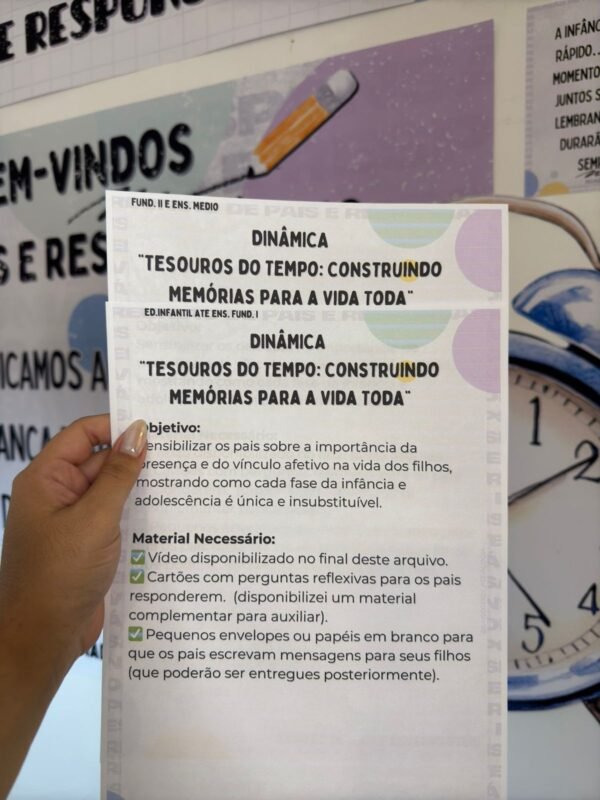 E RESPON
A INFÂNC
RÁPIDO..
MOMENTO
JUNTOS S
LEMBRAN
DURARÃ
SEMP
EM-VINDOS
S E RES
ICAMOS A
ANÇA
FUND. II E ENS. MEDIO
DINÂMICA
"TESOUROS DO TEMPO: CONSTRUINDO
MEMÓRIAS PARA A VIDA TODA"
ED.INFANTIL ATE ENS. FUND. I
DINÂMICA
"TESOUROS DO TEMPO: CONSTRUINDO
MEMÓRIAS PARA A VIDA TODA"
bjetivo:
ensibilizar os pais sobre a importância da
presença e do vínculo afetivo na vida dos filhos,
mostrando como cada fase da infância e
adolescência é única e insubstituível.
Material Necessário:
✅ Vídeo disponibilizado no final deste arquivo.
✅ Cartões com perguntas reflexivas para os pais
responderem. (disponibilizei um material
complementar para auxiliar).
✅ Pequenos envelopes ou papéis em branco para
que os pais escrevam mensagens para seus filhos
(que poderão ser entregues posteriormente).
1
2
4
5